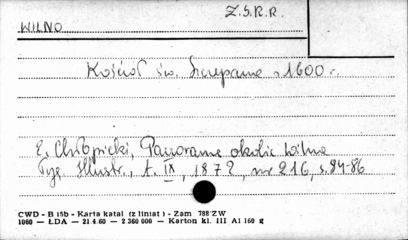 Z.S.R.R.
WILNO
Kościoł św. Szczepana z 1600 r.
E. Chłopicki, Panorama okolic Wilna
Tyg. Illustr., t. IX, 1872, nr 216, s. 84-86
CWD - B i5b - Karta katal (z liniat) - Zam 788 ZW
1060 — ŁDA — 21.4.60 — 2 360 000 — Karton kl. III A1 160 g